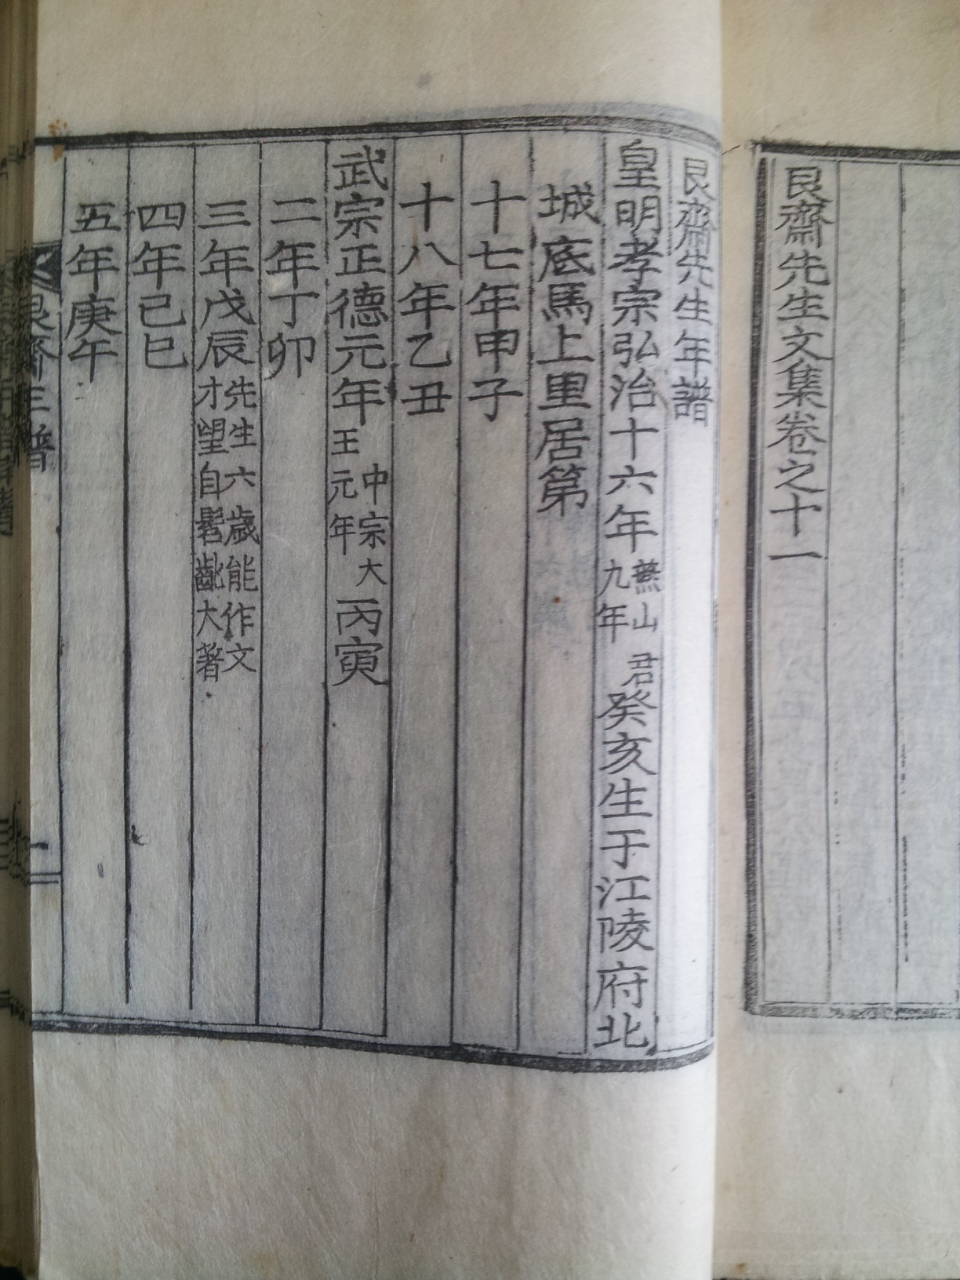 艮齋先生文集卷之十一
艮齋先生年譜
皇明孝宗弘治十六年燕山君九年癸亥生于江陵府北
城底馬上里居第
十七年甲子
十八年乙丑
武宗正德元年中宗大王元年丙寅
二年丁卯
三年戊辰先生六歲能作文才望自髫齔大著
四年己巳
五年庚午